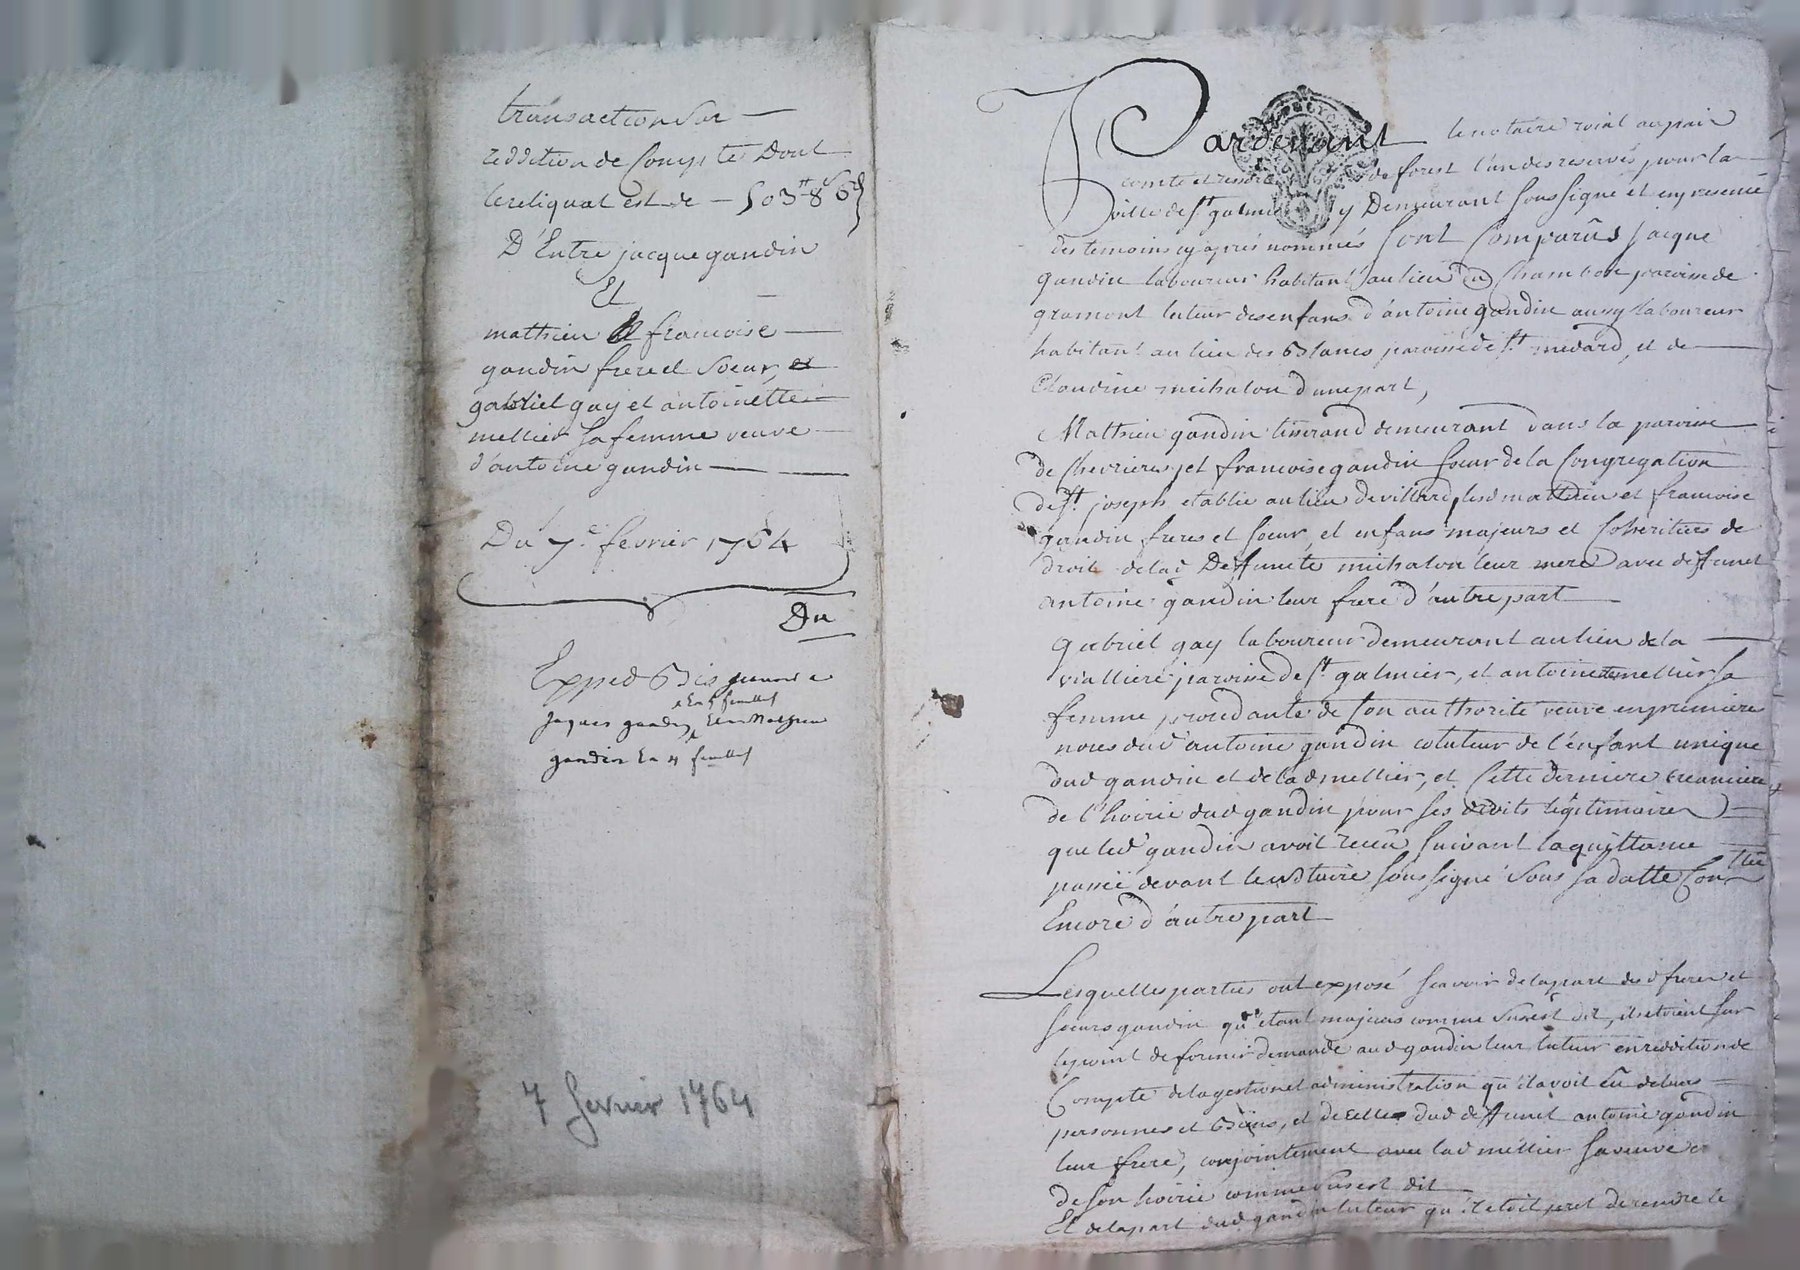 transaction sur
reddition de Compte Dont
le reliquat est de — 503ᵗᵗ 8ˢ 6ᵈ
D'Entre jacque gandin
Et
mathieu & francoise
gandin frere et soeur, et
gabriel gay et antoinette
mellier sa femme veuve
d'antoine gandin
Du 7e. fevrier 1764
Du
Expedé Bis
en 5 feuillets
jaques gandin, Et a Mathieu
gandin En 4 feuillets
7 fevrier 1764
Pardevant le notaire roial au païs
comté et de forest l'un des reservés pour la
ville de St galmier y Demeurant soussigné et en presence
des temoins cy après nommés sont Comparûs jacque
gandin laboureur habitant au lieu du Chambon paroisse de
gramont tuteur des enfans d'antoine gandin aussy laboureur
habitant au lieu des Blancs paroisse de St medard, et de
Claudine michalon d'une part,
Mathieu gandin tisserand demeurant dans la paroisse
de Chevrieres, et francoise gandin soeur de la Congregation
de St joseph etablie au lieu de villard, lesd mathieu et francoise
gandin freres et soeur, et enfans majeurs et Coheritiers de
droit de lad Deffunte michalon leur mere avec deffunct
antoine gandin leur frere d'autre part
Gabriel gay laboureur demeurant au lieu de la
vialliere paroisse de St galmier, et antoinette mellier sa
femme procedante de son authorité veuve en premieres
noces dud antoine gandin cotuteur de l'enfant unique
dud gandin et de lad mellier, et Cette derniere creanciere
de l'hoirie dud gandin pour ses droits legitimaires
que led gandin avoit reçeu suivant la quittance
passée devant le notaire soussigné sous sa datte Contlée
Encore d'autre part
Lesquelles parties ont exposé scavoir de la part des d freres et
soeurs gandin qu'etant majeurs comme sus est dit, ils etoient sur
le point de former demande aud gandin leur tuteur en reddition de
Compte de la gestion et administration qu'il avoit eü de leurs
personnes et Biens, et de Celles dud deffunct antoine gandin
leur frere, conjointement avec lad mellier sa veuve
de son hoirie comme sus est dit
Et de la part dud gandin tuteur qu'il etoit pret de rendre le